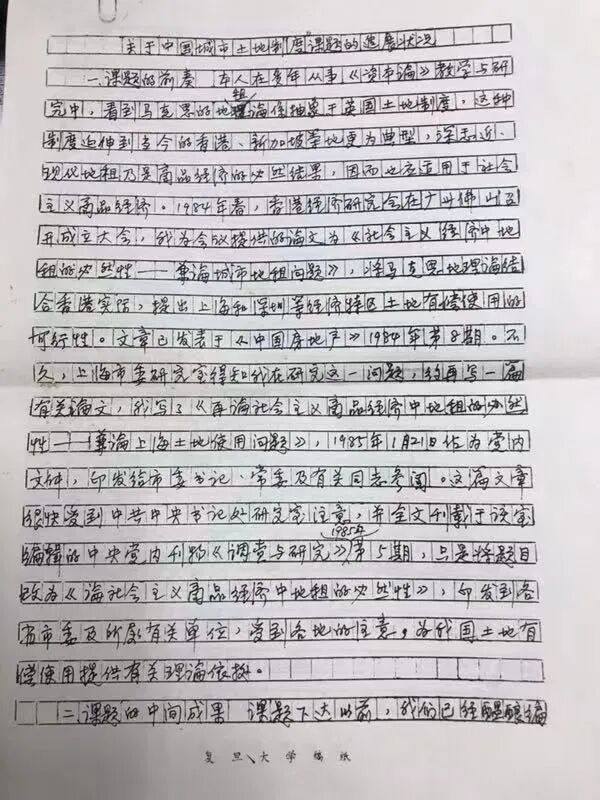 关于中国城市土地制度课题的进展状况
一、课题的前奏 本人在多年从事《资本论》教学与研
究中，看到马克思的地租论像抽象于英国土地制度，这种
制度延伸到当今的香港、新加坡等地更为典型，深刻述、
现代地租乃是商品经济的必然结果，因而也应适用于社会
主义商品经济。1984年春，香港经济研究会在广州佛山召
开成立大会，我为会议提供的论文为《社会主义经济中地
租的必然性——兼论城市地租问题》，将马克思地理论结
合香港实际，提出上海和深圳等经济特区土地有偿使用的
可行性。文章已发表于《中国房地产》1984年第8期。不
久，上海市委研究室得知我在研究这一问题，约再写一篇
有关论文，我写了《再论社会主义商品经济中地租的必然
性——兼论上海土地使用问题》，1985年1月21日作为党内
文件，印发给市委书记、常委及有关同志参阅。这篇文章
很快受到中共中央书记处研究室注意，并全文刊载于该室
编辑的中央党内刊物《调查与研究》1985年第5期，只是将题目
改为《论社会主义商品经济中地租的必然性》，印发到各
省市委及所属有关单位，受到各地的注意，为我国土地有
偿使用提供有关理论依据。
二、课题的中间成果 课题下达以前，我们已经酝酿编
复旦大学稿纸